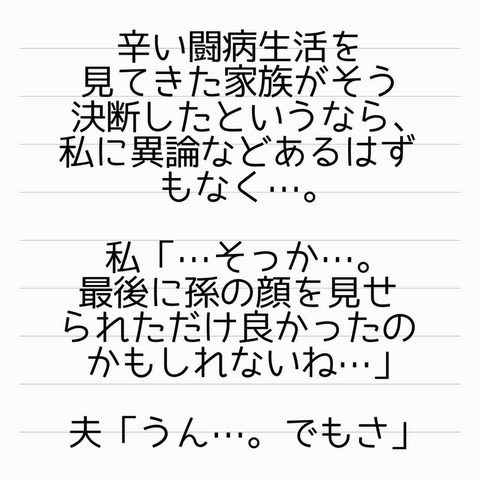 辛い闘病生活を
見てきた家族がそう
決断したというなら、
私に異論などあるはず
もなく…。
私「…そっか…。
最後に孫の顔を見せ
られただけ良かったの
かもしれないね…」
夫「うん…。でもさ」